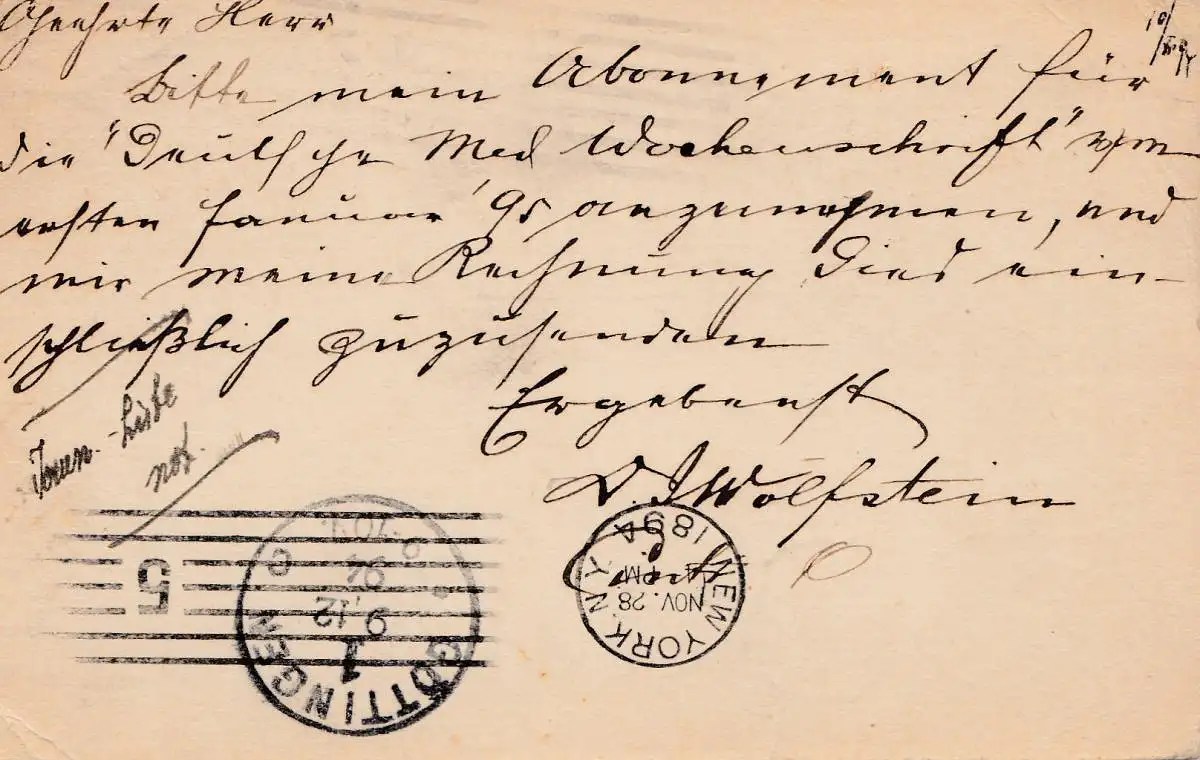 Geehrte Herr
Bitte mein Abonnement für
die "Deutsche Med Wochenschrift" vom
ersten Januar '95 anzunehmen, und
mir meine Rechnung dies ein-
schließlich zuzusenden
Ergebenst
D. I Wolfstein
NEW YORK N.Y.
NOV. 28
4 PM
1894
GÖTTINGEN
1
9.12
94
9-10 V.
C
5
not.